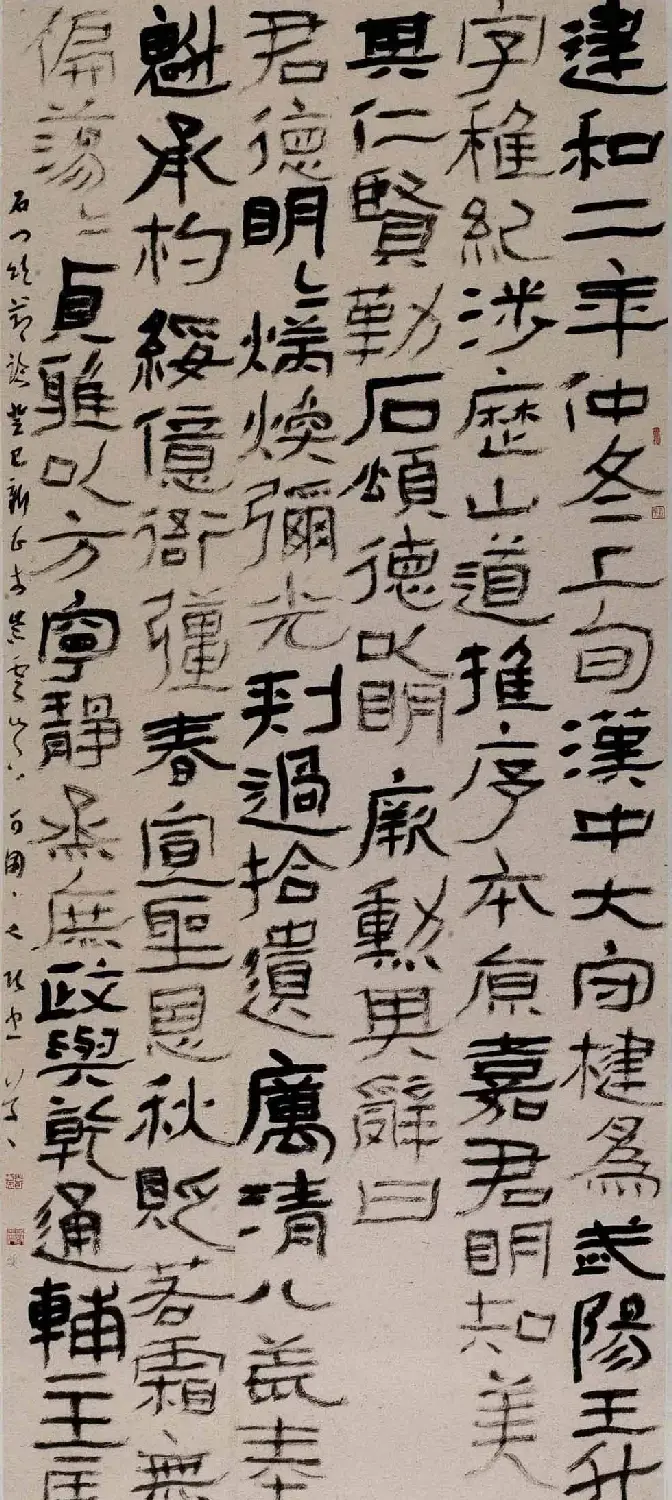 建和二年仲冬上旬漢中大守楗為武陽王升
字稚紀涉歷山道推序本原嘉君明知美
其仁賢勒石頌德以明厥勳其辭曰
君德明明炳煥彌光刺過拾遺厲清八荒奉
魁承杓綏億衙彊春宣聖恩秋貶若霜無
偏蕩蕩貞雅以方寧靜烝庶政與乾通輔主匡
石門頌節臨癸巳新正